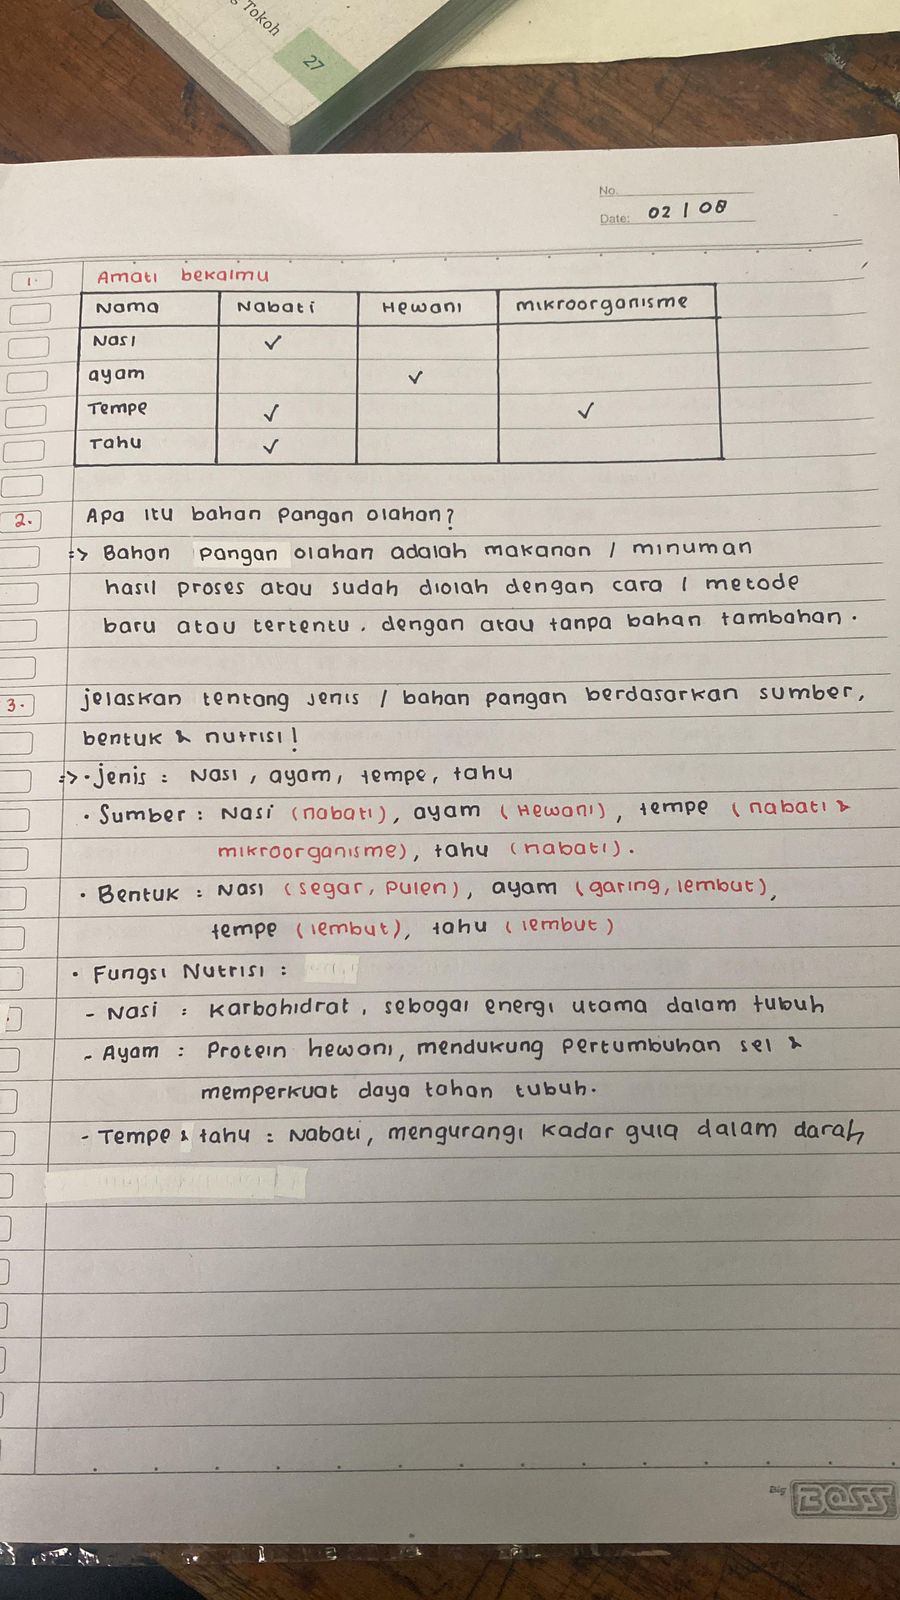 Tokoh
27
No.
Date: 02 / 08
1. Amati bekalmu
Nama Nabati Hewani mikroorganisme
Nasi ✓
ayam ✓
Tempe ✓ ✓
Tahu ✓
2. Apa itu bahan pangan olahan?
=> Bahan pangan olahan adalah makanan / minuman
hasil proses atau sudah diolah dengan cara / metode
baru atau tertentu. dengan atau tanpa bahan tambahan.
3. jelaskan tentang jenis / bahan pangan berdasarkan sumber,
bentuk & nutrisi!
=> • jenis : Nasi, ayam, tempe, tahu
• Sumber : Nasi (nabati), ayam (Hewani), tempe (nabati &
mikroorganisme), tahu (nabati).
• Bentuk : Nasi (segar, pulen), ayam (garing, lembut),
tempe (lembut), tahu (lembut)
• Fungsi Nutrisi :
- Nasi : Karbohidrat, sebagai energi utama dalam tubuh
- Ayam : Protein hewani, mendukung pertumbuhan sel &
memperkuat daya tahan tubuh.
- Tempe & tahu : Nabati, mengurangi kadar gula dalam darah
Big BOSS